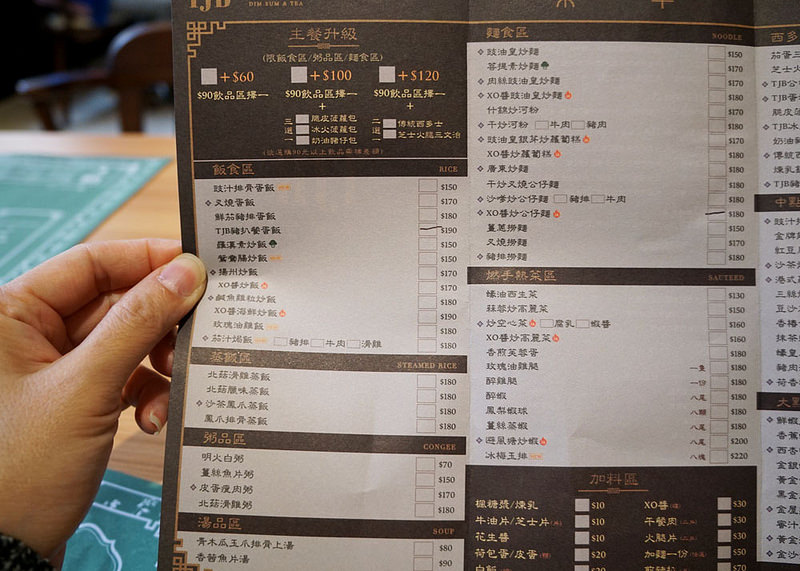 TJB
DIM SUM & TEA
主餐升級
(限飯食區/粥品區/麵食區)
+$60 +$100 +$120
$90飲品區擇一 $90飲品區擇一 $90飲品區擇一
+ +
三選一 脆皮菠蘿包
冰火菠蘿包
奶油豬仔包
二選一 傳統西多士
芝士火腿三文治
飯食區 RICE
豉汁排骨蛋飯 $150
❖叉燒蛋飯 $170
鮮茄豬排蛋飯 $180
TJB豬扒餐蛋飯 $190
羅漢素炒飯 $150
鴛鴦腸炒飯 $150
❖揚州炒飯 $170
XO醬炒飯 $170
❖鹹魚雞粒炒飯 $180
XO醬海鮮炒飯 $190
玫瑰油雞飯 $180
❖茄汁焗飯 豬排 牛肉 滑雞 $180
蒸飯區 STEAMED RICE
北菇滑雞蒸飯 $180
北菇臘味蒸飯 $180
❖沙茶鳳爪蒸飯 $180
鳳爪排骨蒸飯 $180
粥品區 CONGEE
明火白粥 $70
薑絲魚片粥 $150
❖皮蛋瘦肉粥 $170
北菇滑雞粥 $180
湯品區 SOUP
青木瓜玉爪排骨上湯 $80
香茜魚片湯 $90
麵食區 NOODLE
❖豉油皇炒麵 $150
菩提素炒麵 $170
❖肉絲豉油皇炒麵 $170
XO醬豉油皇炒麵 $170
什錦炒河粉 $180
❖干炒河粉 牛肉 豬肉 $170
❖豉油皇銀芽炒蘿蔔糕 $170
XO醬炒蘿蔔糕 $180
❖廣東炒麵 $180
干炒叉燒公仔麵 $180
❖沙爹炒公仔麵 豬排 牛肉 $180
❖XO醬炒公仔麵 $180
薑蔥撈麵 $150
叉燒撈麵 $170
❖豬排撈麵 $180
燃手熱菜區 SAUTEED
蠔油西生菜 $130
蒜蓉炒時菜 $150
❖炒空心菜 腐乳 蝦醬 $160
XO醬炒高麗菜 $160
香煎芙蓉蛋 $180
玫瑰油雞腿 一隻 $180
醉雞腿 一份 $180
醉蝦 八尾 $180
鳳梨蝦球 八顆 $180
薑絲蒸蝦 八尾 $180
❖避風塘炒蝦 八尾 $200
冰梅玉排 八塊 $220
加料區
楓糖漿/煉乳 $10 XO醬 $30
牛油片/芝士片 $10 午餐肉 $30
花生醬 $10 火腿片 $30
荷包蛋/皮蛋 $20 加麵一份 $50
白飯 $20 煎豬扒 $70
西多
茄蛋三
芝士火
TJB公
❖TJB蛋
脆皮菠
❖TJB冰
奶油豬
❖傳統西
煉乳
❖TJB豬
中點
❖豉汁排
金牌
紅豆
❖沙茶
❖港式
三絲
豆沙
香椿
抹茶
蠔皇
豬肉
❖荷香
大點
❖鮮蝦
香蕉
❖西杏
金銀
黃金
黑金
❖金屋
蜜汁
黃金
❖金沙